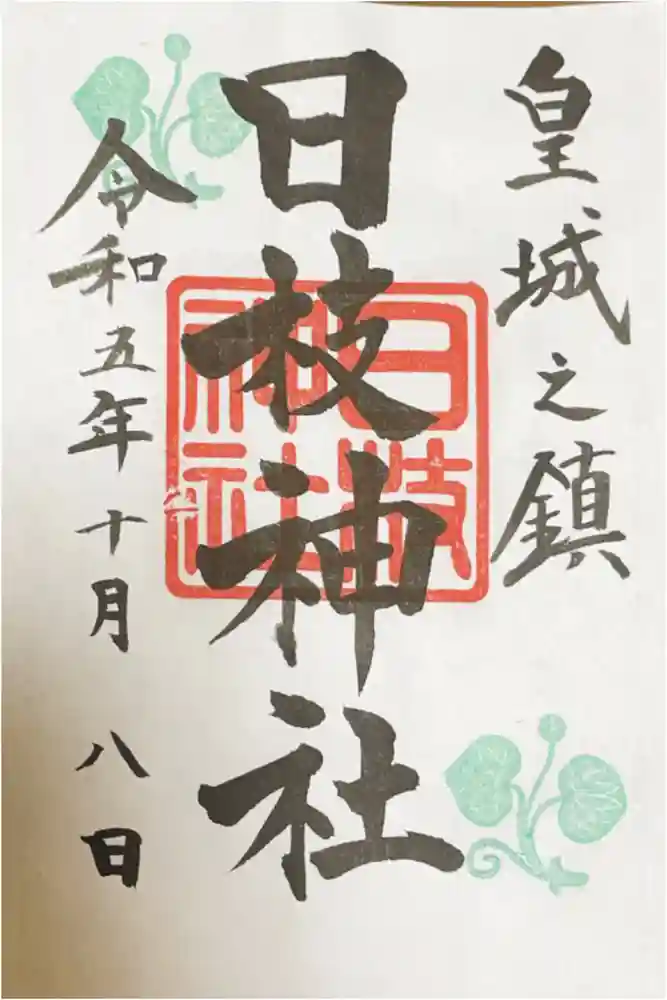 皇城之鎮
日枝神社
日枝
神社
令和五年十月八日